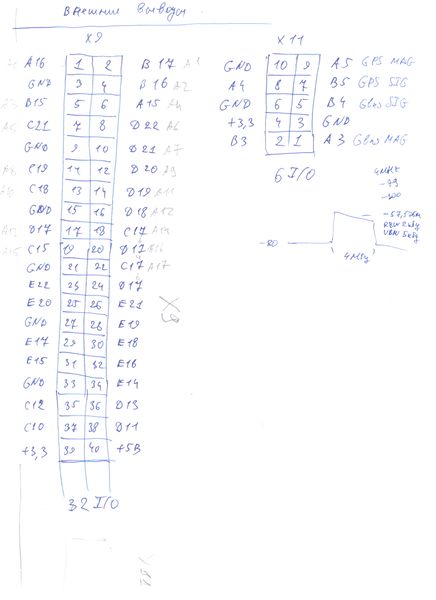 Внешние выводы
X9
A16 1 2 B17
GND 3 4 B16 A2
B15 5 6 A15 A4
C21 7 8 D22 A6
GND 9 10 D21 A7
C19 11 12 D20 A9
C18 13 14 D19 A11
GND 15 16 D18 A12
D17 17 18 C17 A14
C15 19 20
GND 21 22 C17 A17
E22 23 24 D17
E20 25 26 E21
GND 27 28 E19
E17 29 30 E18
E15 31 32 E16
GND 33 34 E14
C12 35 36 D13
C10 37 38 D11
+3,3 39 40 +5В
32 I/O
X11
GND 10 9 A5 GPS MAG
A4 8 7 B5 GPS SIG
GND 6 5 B4 Glos SIG
+3,3 4 3 GND
B3 2 1 A3 Glos MAG
6 I/O
-80
4МГц
X9